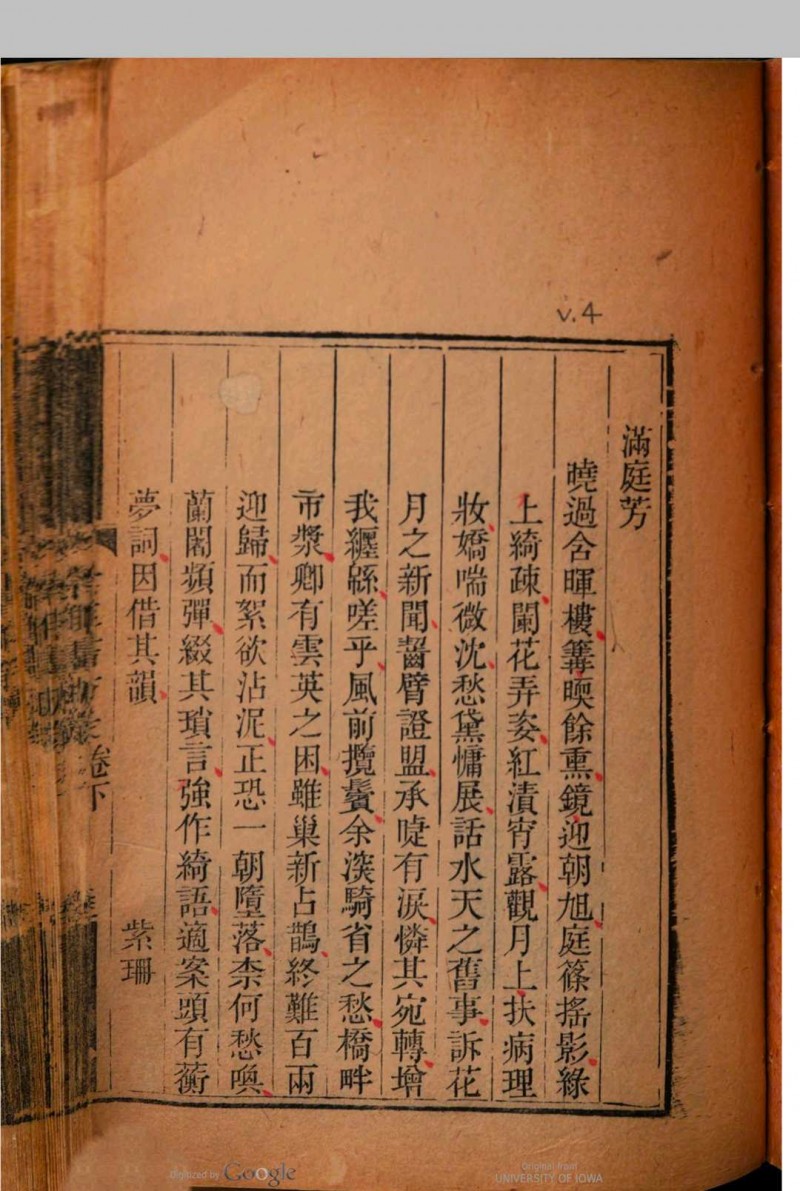 v.4
滿庭芳
曉過含暉樓篝煗餘熏鏡迎朝旭庭篠搖影綠
上綺疎闌花弄姿紅漬宵露觀月上扶病理
妝嬌喘微沈愁黛慵展話水天之舊事訴花
月之新聞齧臂證盟承睫有淚憐其宛轉增
我纏緜嗟乎風前攬鬢余淡騎省之愁橋畔
市漿卿有雲英之困雖巢新占鵲終難百兩
迎歸而絮欲沾泥正恐一朝墮落柰何愁喚
蘭闍頻彈綴其瑣言強作綺語適案頭有蘅
夢詞因借其韻
紫珊
卷下
Digitized by Google
Original from
UNIVERSITY OF IOWA